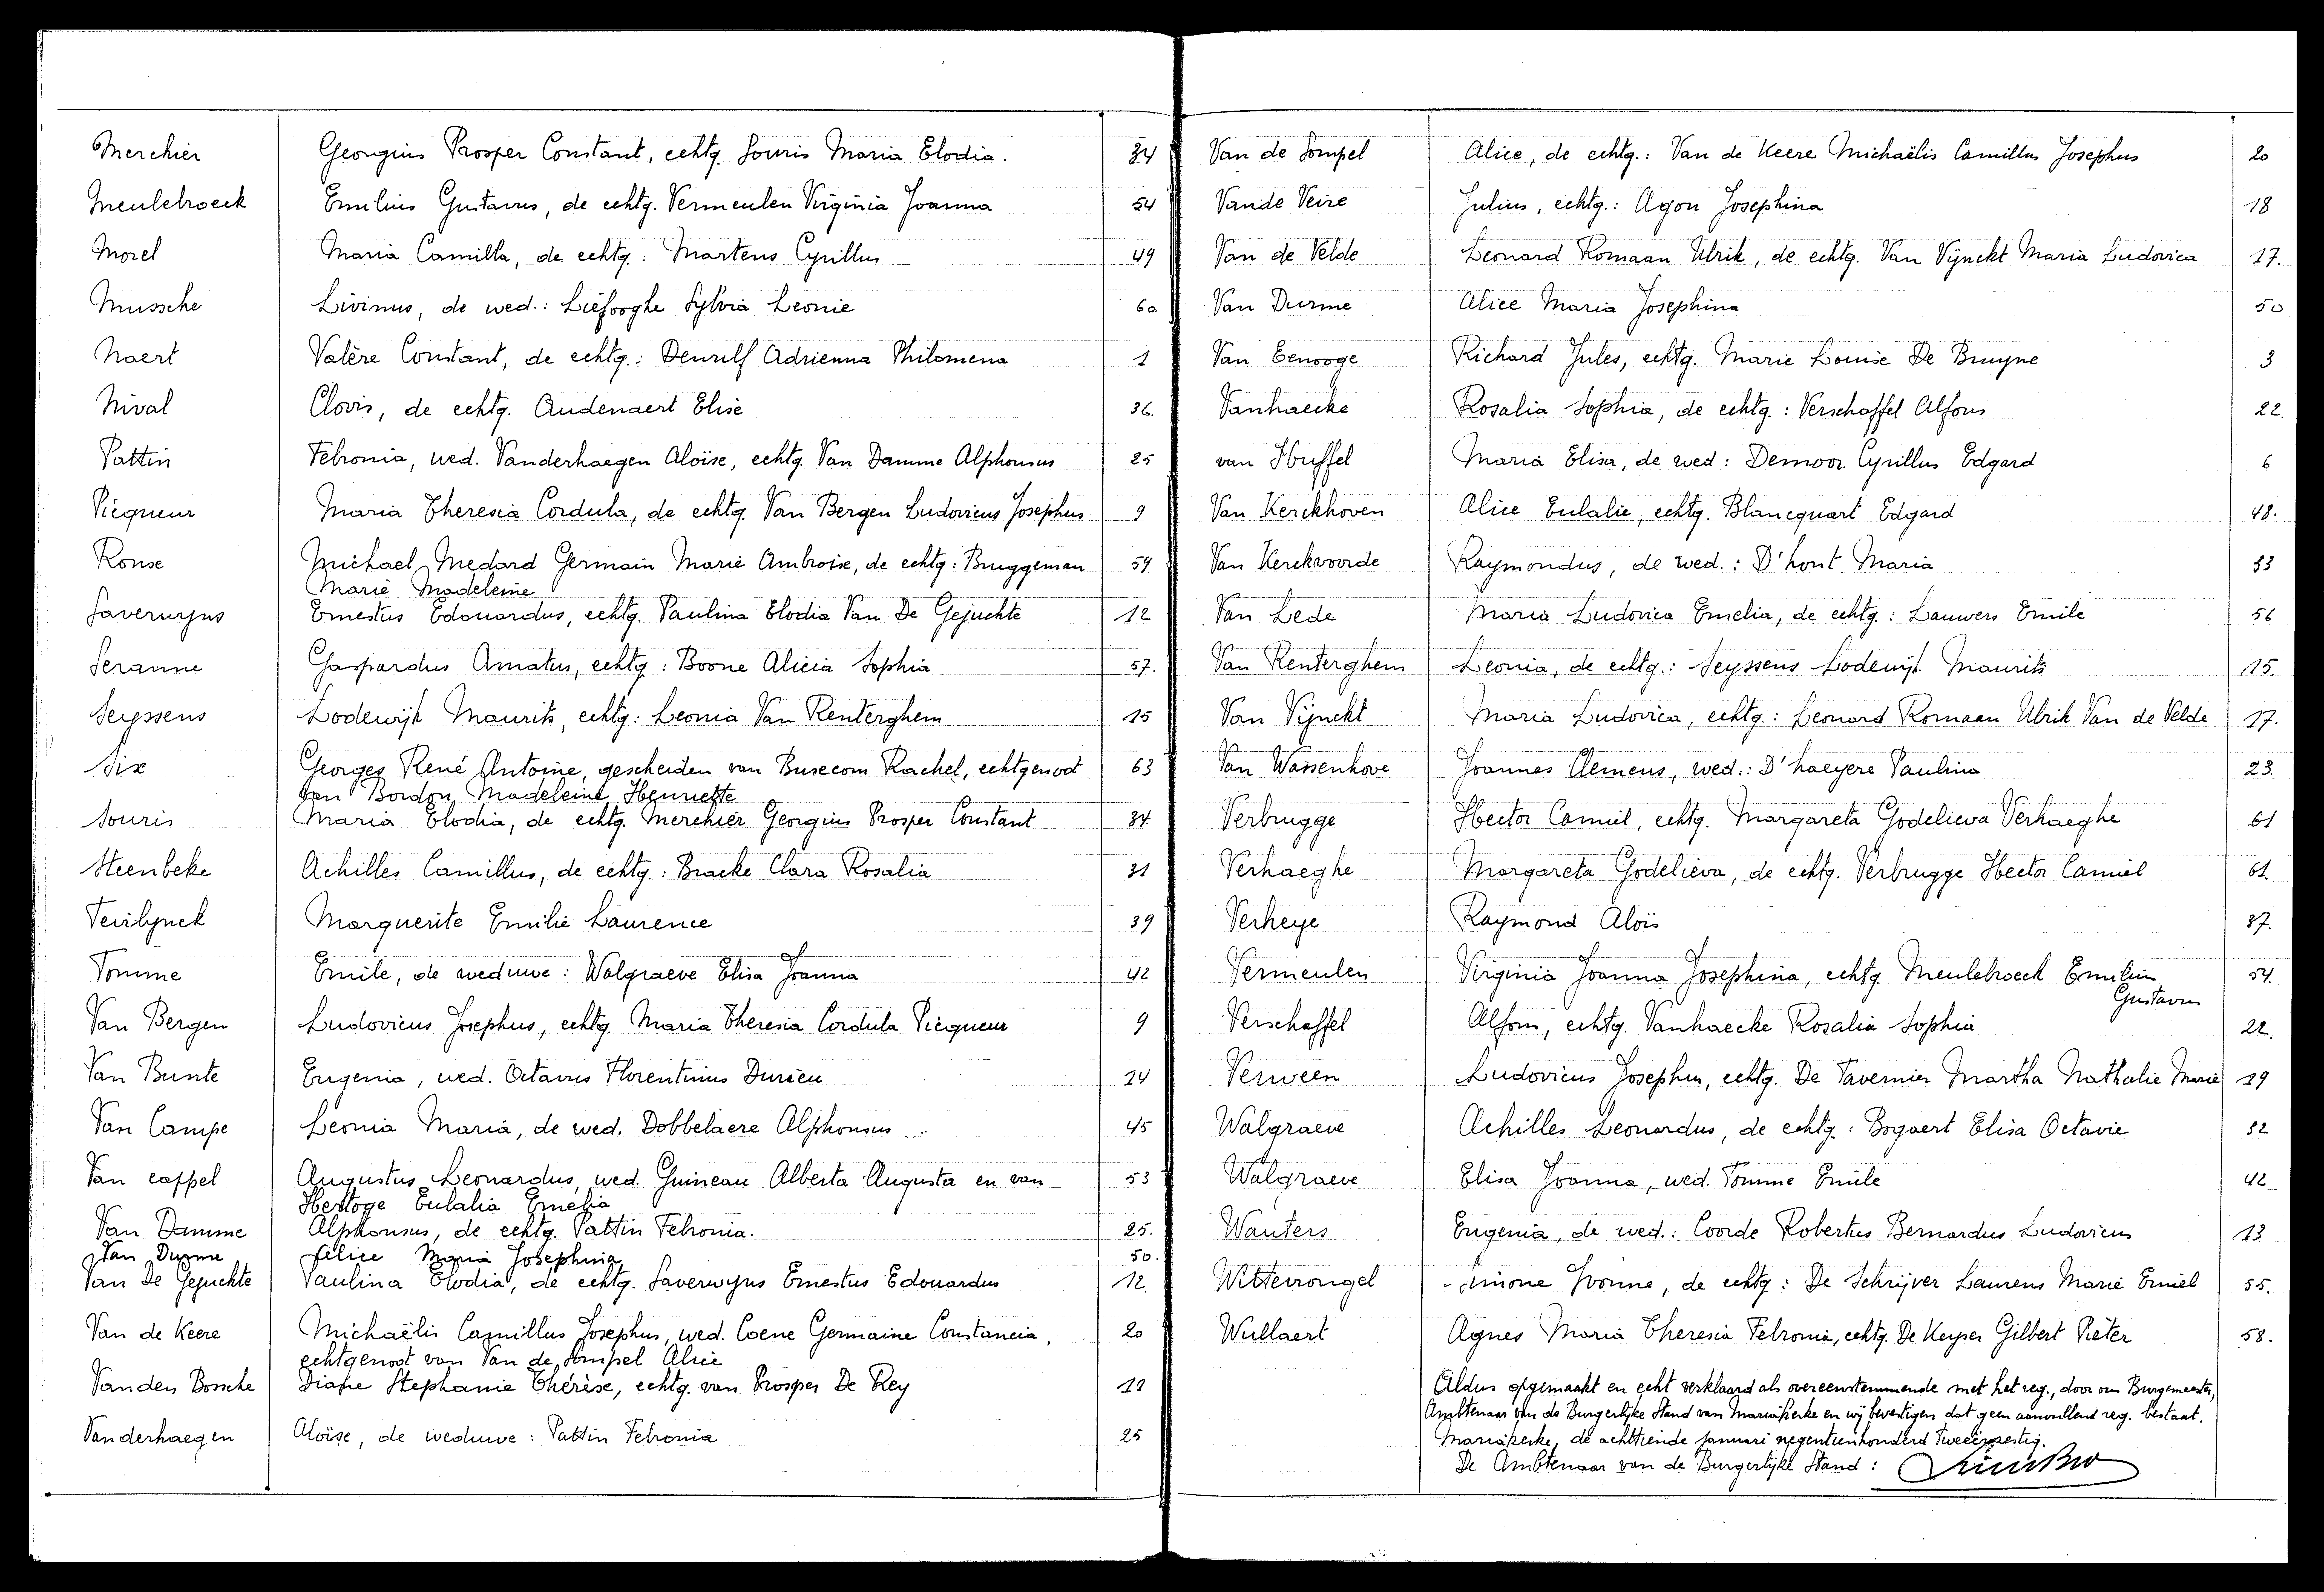 Merchier Georgius Prosper Constant, echtg. Souris Maria Elodia. 34
Meulebroeck Emilius Gustavus, de echtg. Vermeulen Virginia Joanna 54
Morel Maria Camilla, de echtg.: Martens Cyrillus 49
Mussche Livinus, de wed.: Liefooghe Sylvia Leonie 60.
Naert Valère Constant, de echtg.: Denulf Adrienna Philomena 1
Nival Clovis, de echtg. Audenaert Elise 36.
Pattin Febronia, wed. Vanderhaegen Aloïse, echtg. Van Damme Alphonsus 25
Piequeur Maria Theresia Cordula, de echtg. Van Bergen Ludovicus Josephus 9
Ronse Michael Medard Germain Marie Ambroise, de echtg: Bruggeman 59
Marie Madeleine
Saverwyns Ernestus Edouardus, echtg. Paulina Elodia Van De Gejuchte 12
Seranne Gaspardus Amatus, echtg: Boone Alicia Sophia 57.
Seyssens Lodewijk Maurits, echtg: Leonia Van Renterghem 15
Six Georges René Antoine, gescheiden van Busecom Rachel, echtgenoot 63
van Bordon Madeleine Henriette
Souris Maria Elodia, de echtg. Merchier Georgius Prosper Constant 34.
Steenbeke Achilles Camillus, de echtg.: Bracke Clara Rosalia 31
Teirlynck Marguerite Emilie Laurence 39
Tomme Emile, de weduwe: Walgraeve Elisa Joanna 42
Van Bergen Ludovicus Josephus, echtg. Maria Theresia Cordula Piequeur 9
Van Bunte Eugenia, wed. Octavus Florentinus Durieu 14
Van Campe Leonia Maria, de wed. Dobbelaere Alphonsus 45
Van cappel Augustus Leonardus, wed. Guineau Alberta Augusta en van 53
Hertoge Eulalia Emelia
Van Damme Alphonsus, de echtg. Pattin Febronia. 25.
Van Durme Felice Maria Josephina 50.
Van De Gejuchte Paulina Elodia, de echtg. Saverwyns Ernestus Edouardus 12.
Van de Keere Michaëlis Camillus Josephus, wed. Coene Germaine Constancia, 20
echtgenoot van Van de Sompel Alice
Vanden Bossche Diane Stephanie Thérèse, echtg. van Prosper De Rey 19
Vanderhaegen Aloïse, de weduwe: Pattin Febronia 25
Van de Sompel Alice, de echtg.: Van de Keere Michaëlis Camillus Josephus 20
Vande Veire Julius, echtg.: Agon Josephina 18
Van de Velde Leonard Romaan Ulrik, de echtg. Van Vijnckt Maria Ludovica 17.
Van Durme Alice Maria Josephina 50
Van Eenooge Richard Jules, echtg. Marie Louise De Bruyne 3
Vanhaecke Rosalia Sophia, de echtg.: Verschaffel Alfons 22.
van Huffel Maria Elisa, de wed: Demoor Cyrillus Edgard 6
Van Kerckhoven Alice Eulalie, echtg. Blancquart Edgard 48.
Van Kerckvoorde Raymondus, de wed.: D'hont Maria 33
Van Lede Maria Ludovica Emelia, de echtg.: Lauwers Emile 56
Van Renterghem Leonia, de echtg.: Seyssens Lodewijk Maurits 15.
Van Vijnckt Maria Ludovica, echtg.: Leonard Romaan Ulrik Van de Velde 17.
Van Wassenhove Joannes Clemens, wed.: D'haeyere Paulina 23.
Verbrugge Hector Camiel, echtg. Margareta Godelieva Verhaeghe 61
Verhaeghe Margareta Godelieva, de echtg. Verbrugge Hector Camiel 61.
Verheye Raymond Aloïs 37.
Vermeulen Virginia Joanna Josephina, echtg. Meulebroeck Emilius 54.
Gustavus
Verschaffel Alfons, echtg. Vanhaecke Rosalia Sophia 22.
Verween Ludovicus Josephus, echtg. De Tavernier Martha Nathalie Marie 29
Walgraeve Achilles Leonardus, de echtg: Bogaert Elisa Octavie 32
Walgraeve Elisa Joanna, wed. Tomme Emile 42
Wauters Eugenia, de wed.: Coorde Robertus Bernardus Ludovicus 13
Wittevrongel Simone Yvonne, de echtg: De Schrijver Laurens Marie Emiel 55.
Wullaert Agnes Maria Theresia Febronia, echtg. De Keyser Gilbert Pieter 58.
Aldus opgemaakt en echt verklaard als overeenstemmende met het reg., door ons Burgemeester,
Ambtenaar van de Burgerlijke Stand van Mariakerke en wij bevestigen dat geen aanvullend reg. bestaat.
Mariakerke, de achttiende januari negentienhonderd tweeënzestig.
De Ambtenaar van de Burgerlijke Stand: